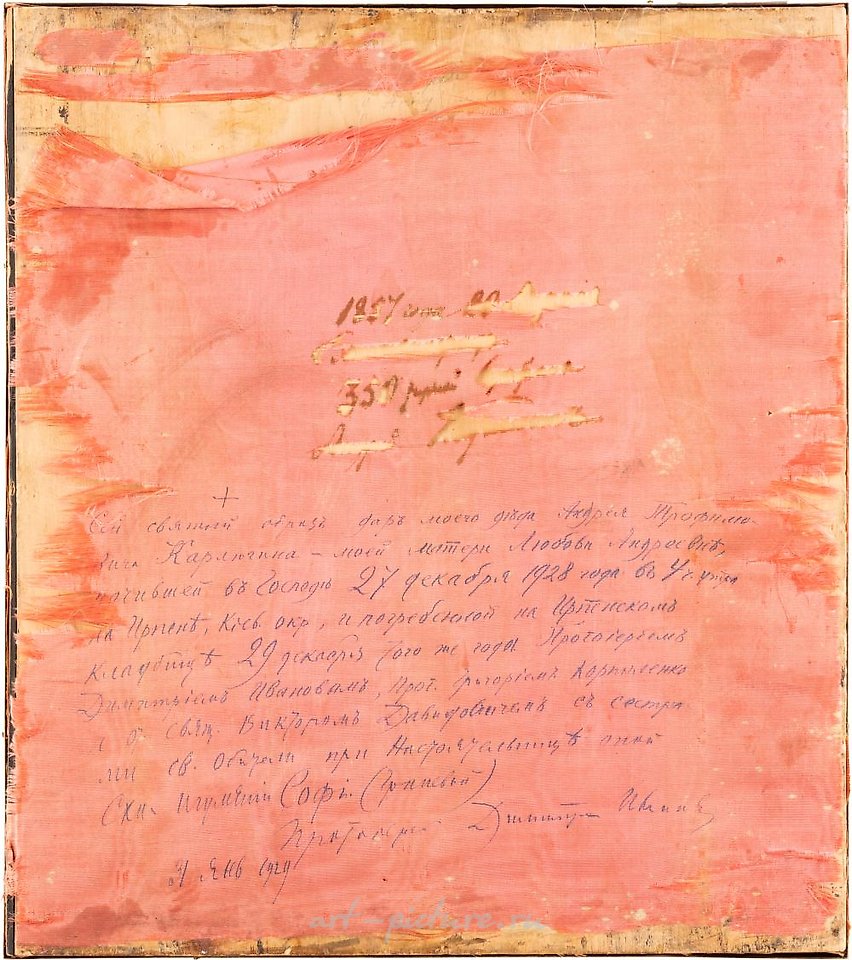 1857 года 20
350 рублей
+
Сей святый образъ даръ моего дѣда Андрея Трофимо-
вича Карлюгина – моей матери Любови Андреевнѣ,
почившей въ Господѣ 27 декабря 1928 года въ 4 ч. утра
на Ирпенѣ, Кіев. окр., и погребенной на Ирпенскомъ
кладбищѣ 29 декабря того же года Протоіереемъ
Димитріемъ Ивановымъ, прот. Григоріемъ Корниленко
и свящ. Викторомъ Давидовичемъ съ сестра-
ми св. Обители при Настоятельницѣ оной
Схи- игуменіи Софіи (Гриневой)
Протоіерей Димитрій Ивановъ
Янв 1929
art-picture.ru